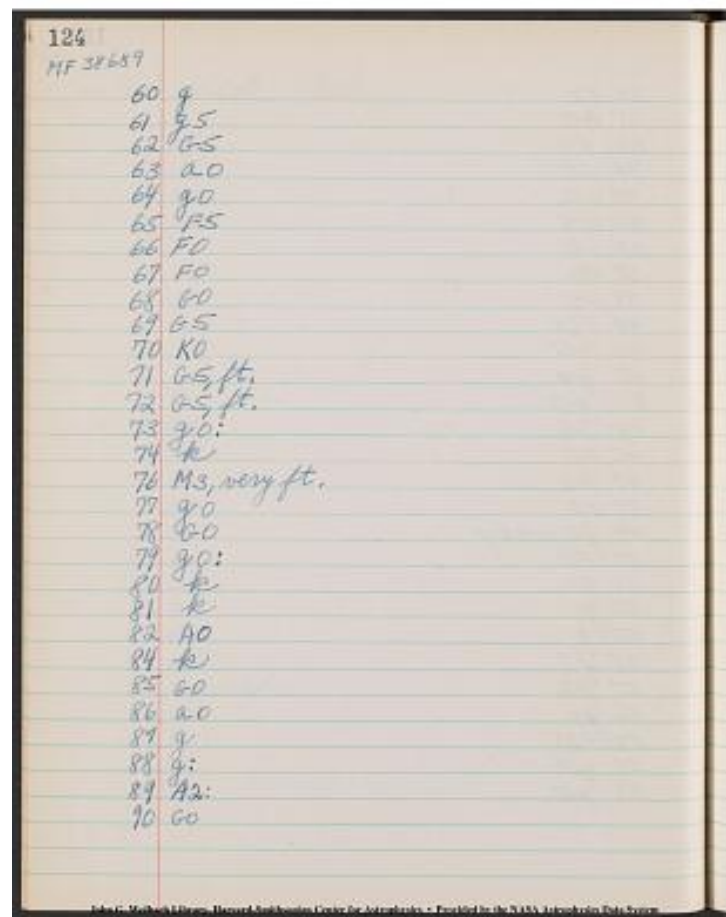 124
MF 38689
60 g
61 g5
62 G5
63 a0
64 g0
65 F5
66 F0
67 F0
68 G0
69 G5
70 K0
71 G5, ft.
72 G5, ft.
73 g0:
74 k
76 M3, very ft.
77 g0
78 G0
79 g0:
80 k
81 k
82 A0
84 k
85 G0
86 a0
87 g
88 g:
89 A2:
90 G0
John G. Wolbach Library, Harvard-Smithsonian Center for Astrophysics • Provided by the NASA Astrophysics Data System